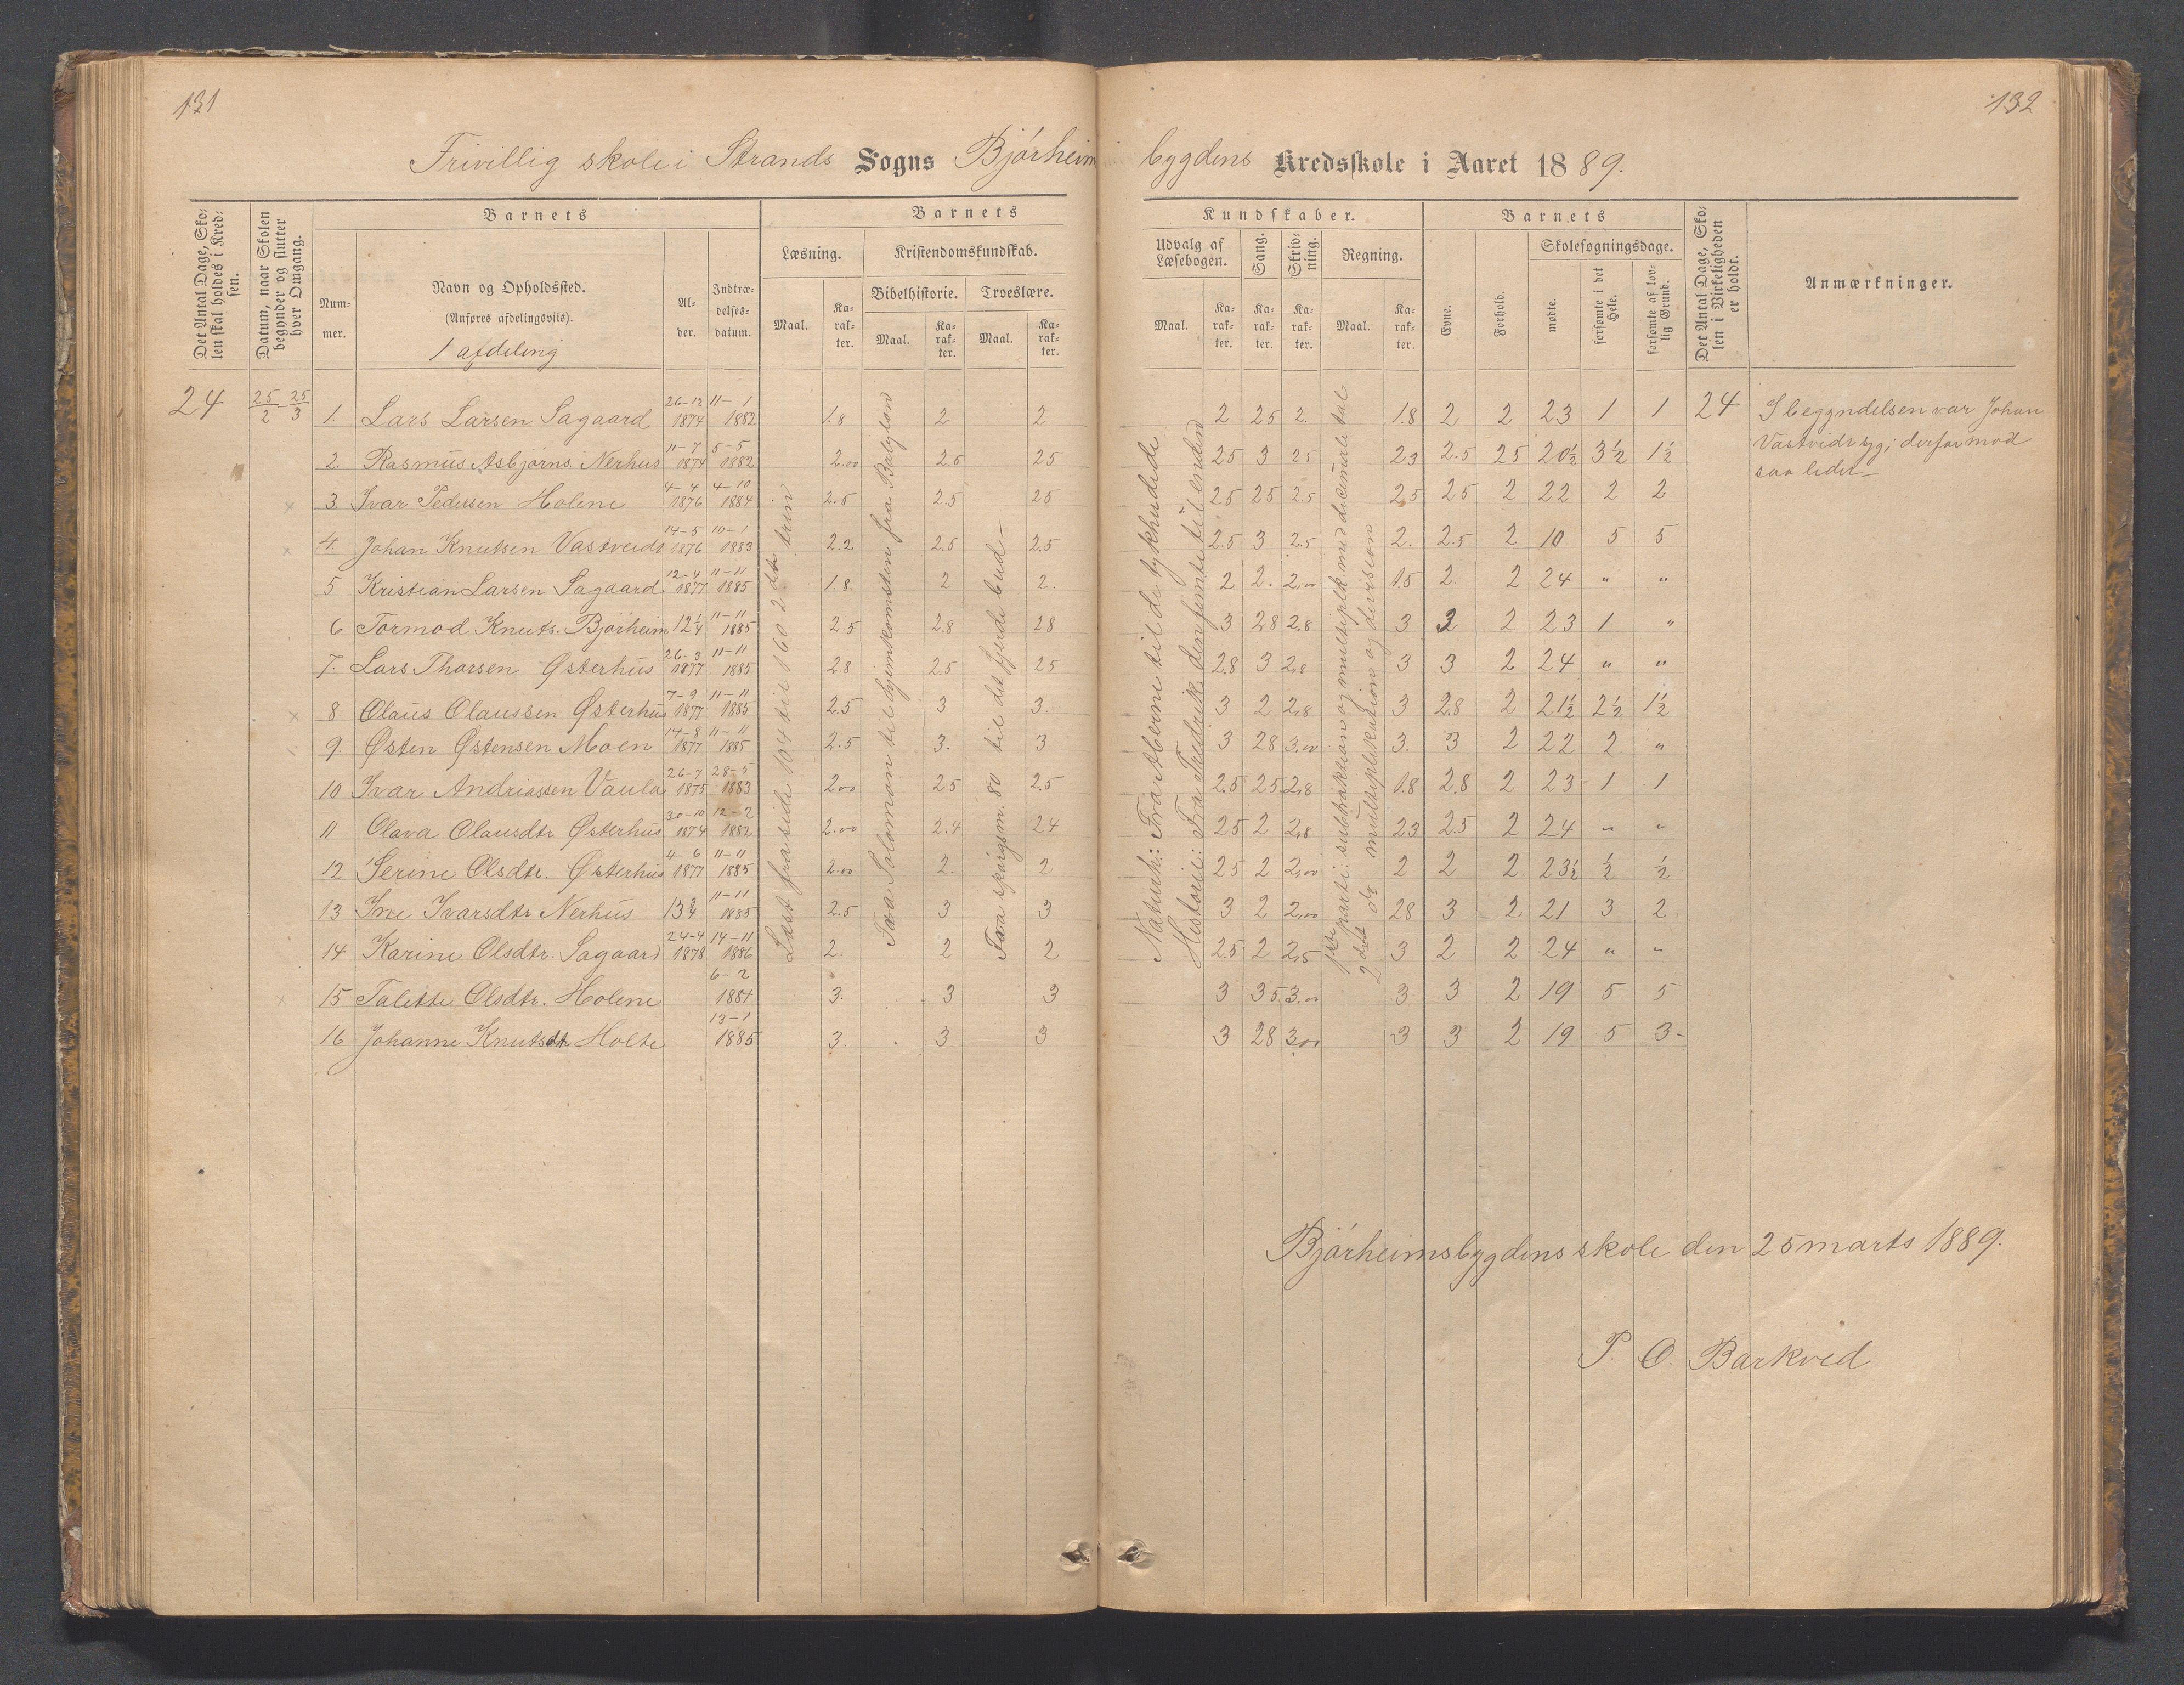 131
132
Frivillig skole i Strands Sogns Bjørheim bygdens Kredsskole i Aaret 1889.
Det Antal Dage, Skolen skal holdes i Kredsen.
Datum, naar Skolen begynder og slutter hver Omgang.
Barnets
Nummer.
Navn og Opholdssted.
(Anføres afdelingsvis).
1 afdeling
Alder.
Indtrædelsesdatum.
Barnets
Læsning.
Maal.
Karakter.
Kristendomskundskab.
Bibelhistorie.
Maal.
Karakter.
Troeslære.
Maal.
Karakter.
Kundskaber.
Udvalg af Læsebogen.
Maal.
Karakter.
Sang.
Karakter.
Skrivning.
Karakter.
Regning.
Maal.
Karakter.
Barnets
Evne.
Forhold.
Skolesøgningsdage.
mødte.
forsømte i det Hele.
forsømte af lovlig Grund.
Det Antal Dage, Skolen i Virkeligheden er holdt.
Anmærkninger.
24 25/2 - 25/3
1. Lars Larsen Sagaard 26-12 1874 11-1 1882 1.8 2 2 2 25 2. 1.8 2 2 23 1 1 24
2. Rasmus Asbjørns. Nerhus 11-7 1874 5-5 1882 2.00 2.5 25 25 3 25 23 2.5 25 20½ 3½ 1½
3. Ivar Pedersen Holene 4-4 1876 4-10 1884 2.5 2.5 25 25 25 2.5 2.5 25 2 22 2 2
4. Johan Knutsen Vastveidt 14-5 1876 10-1 1883 2.2 2.5 2.5 2.5 3 2.5 2. 2.5 2 10 5 5
5 Kristian Larsen Sagaard 12-4 1877 11-11 1885 1.8 2 2. 2 2. 2,00 1.5 2. 2 24 " "
6 Tormod Knuts. Bjørheim 12¼ 11-11 1885 25 2.8 28 3 28 2.8 3 3 2 23 1 "
7. Lars Thorsen Østerhus 26-3 1877 11-11 1885 2.8 2.5 25 2.8 3 2,8 3 3 2 24 " "
8 Olaus Olaussen Østerhus 7-9 1877 11-11 1885 2.5 3 3. 3 2 2,8 3 2.8 2 21½ 2½ 1½
9. Østen Østensen Moen 14-8 1877 11-11 1885 2.5 3. 3 3 28 3.00 3. 3 2 22 2 "
10 Ivar Andriassen Vaula 26-7 1875 28-5 1883 200 25 2.5 2.5 25 2,8 1.8 2.8 2 23 1 1
11 Olava Olausdtr Østerhus 30-10 1874 12-2 1882 2.00 2.4 24 25 2 2,8 23 2.5 2 24 " "
12 Serine Olsdtr. Østerhus 4-6 1877 11-11 1885 2.00 2. 2 25 2 2,00 2 2 2 23½ ½ ½
13 Ine Ivarsdtr Nerhus 13¾ 11-11 1885 2.5 3 3 3 2 2,00 28 3 2 21 3 2
14 Karine Olsdtr. Sagaard 24-4 1878 14-11 1886 2. 2 2 2.5 2 2,5 3 2 2 24 " "
15 Talette Olsdtr. Holene 6-2 1884 3. 3 3 3 35 3.00 3 3 2 19 5 5
16 Johanne Knutsdtr Holte 13-1 1885 3. 3 3 3 28 3,00 3 3 2 19 5 3
Læst fra side 104 til 160 2det trin
Fra Solomon til hjemkomsten fra Babylon
Fra spørgsm. 80 til det fjerde bud
Naturh.: Fra artberne til de tykhudede
Historie: Fra Fredrik den femte til enden
1ste parti: subtraktion og multiplk. med decimaletal
2det do multiplikation og division
I begyndelsen var Johan
Vastveidt syg; derfor mød
saa lidet
Bjørheimsbygdens skole den 25 marts 1889.
P. O. Barkved